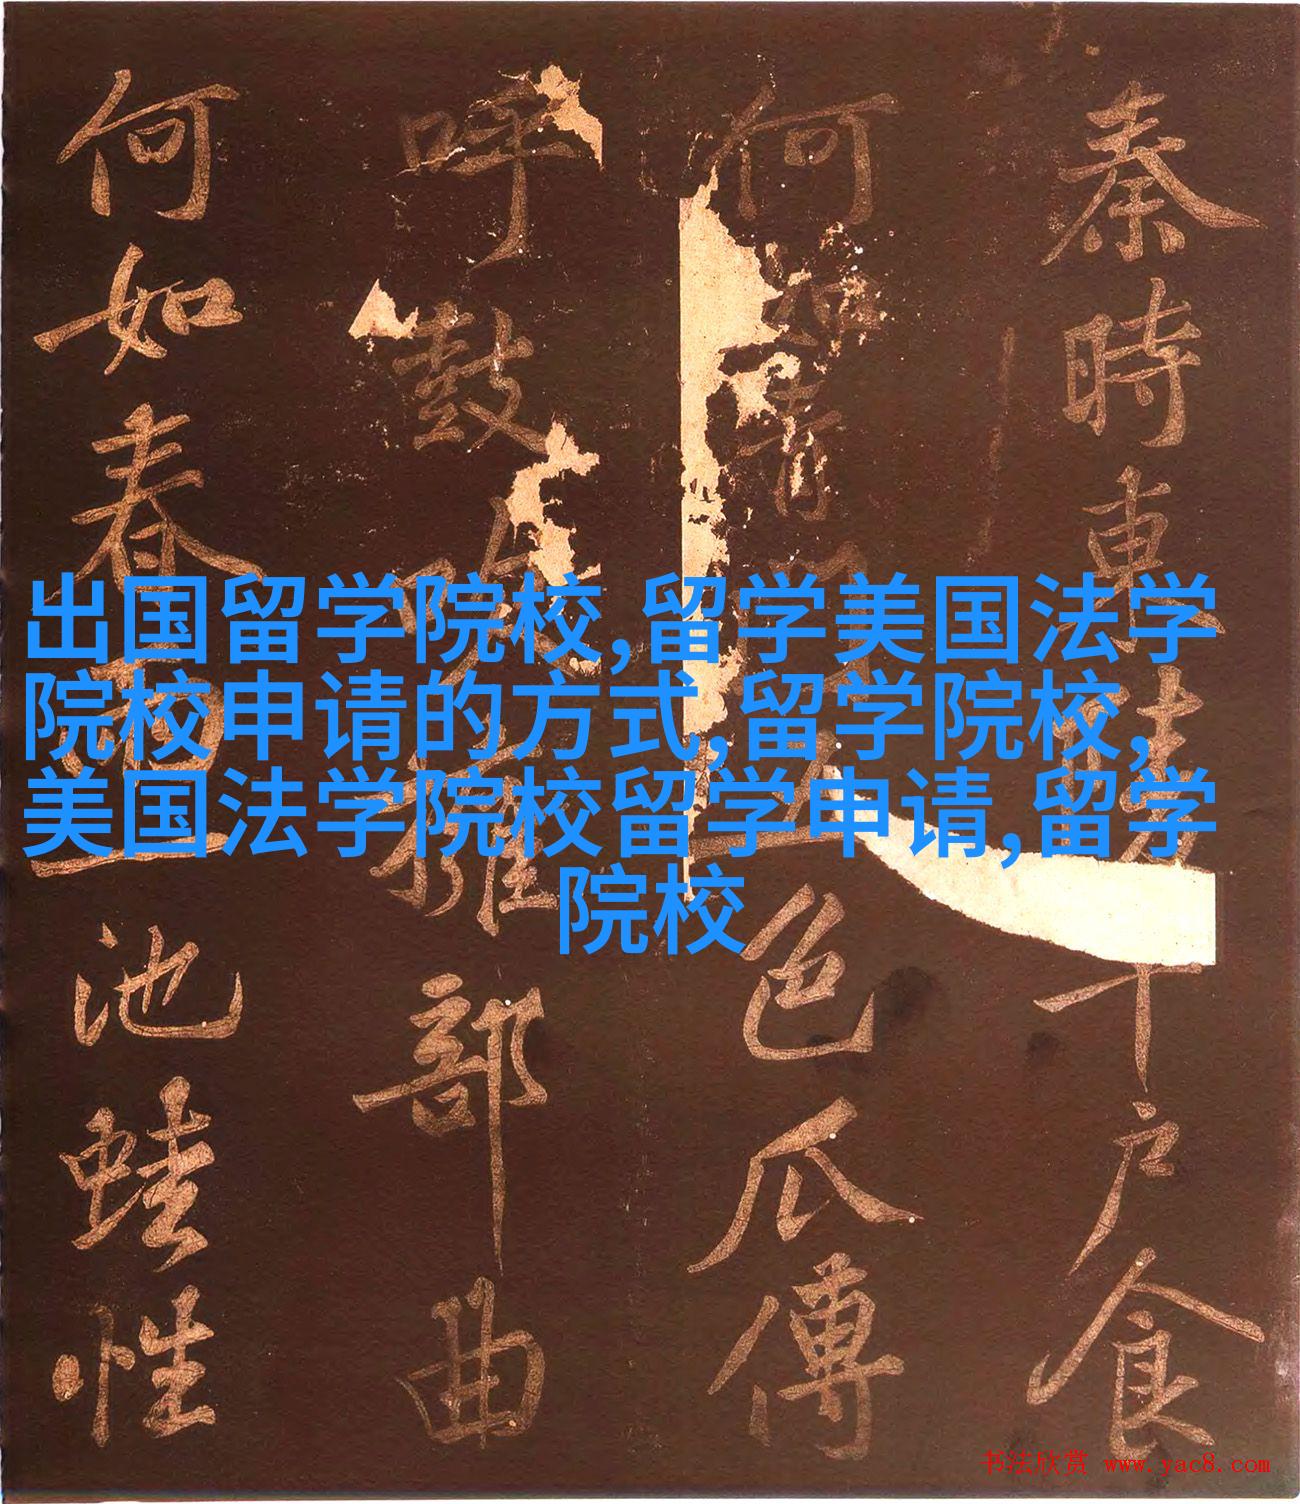 秦時東陵千户食
何如青門五色瓜傳
呼鼓吹擁部曲
何如春雨池蛙性
出国留学院校,留学美国法学
院校申请的方式,留学院校,
美国法学院校留学申请,留学
院校
书法欣赏 www.yac8.com